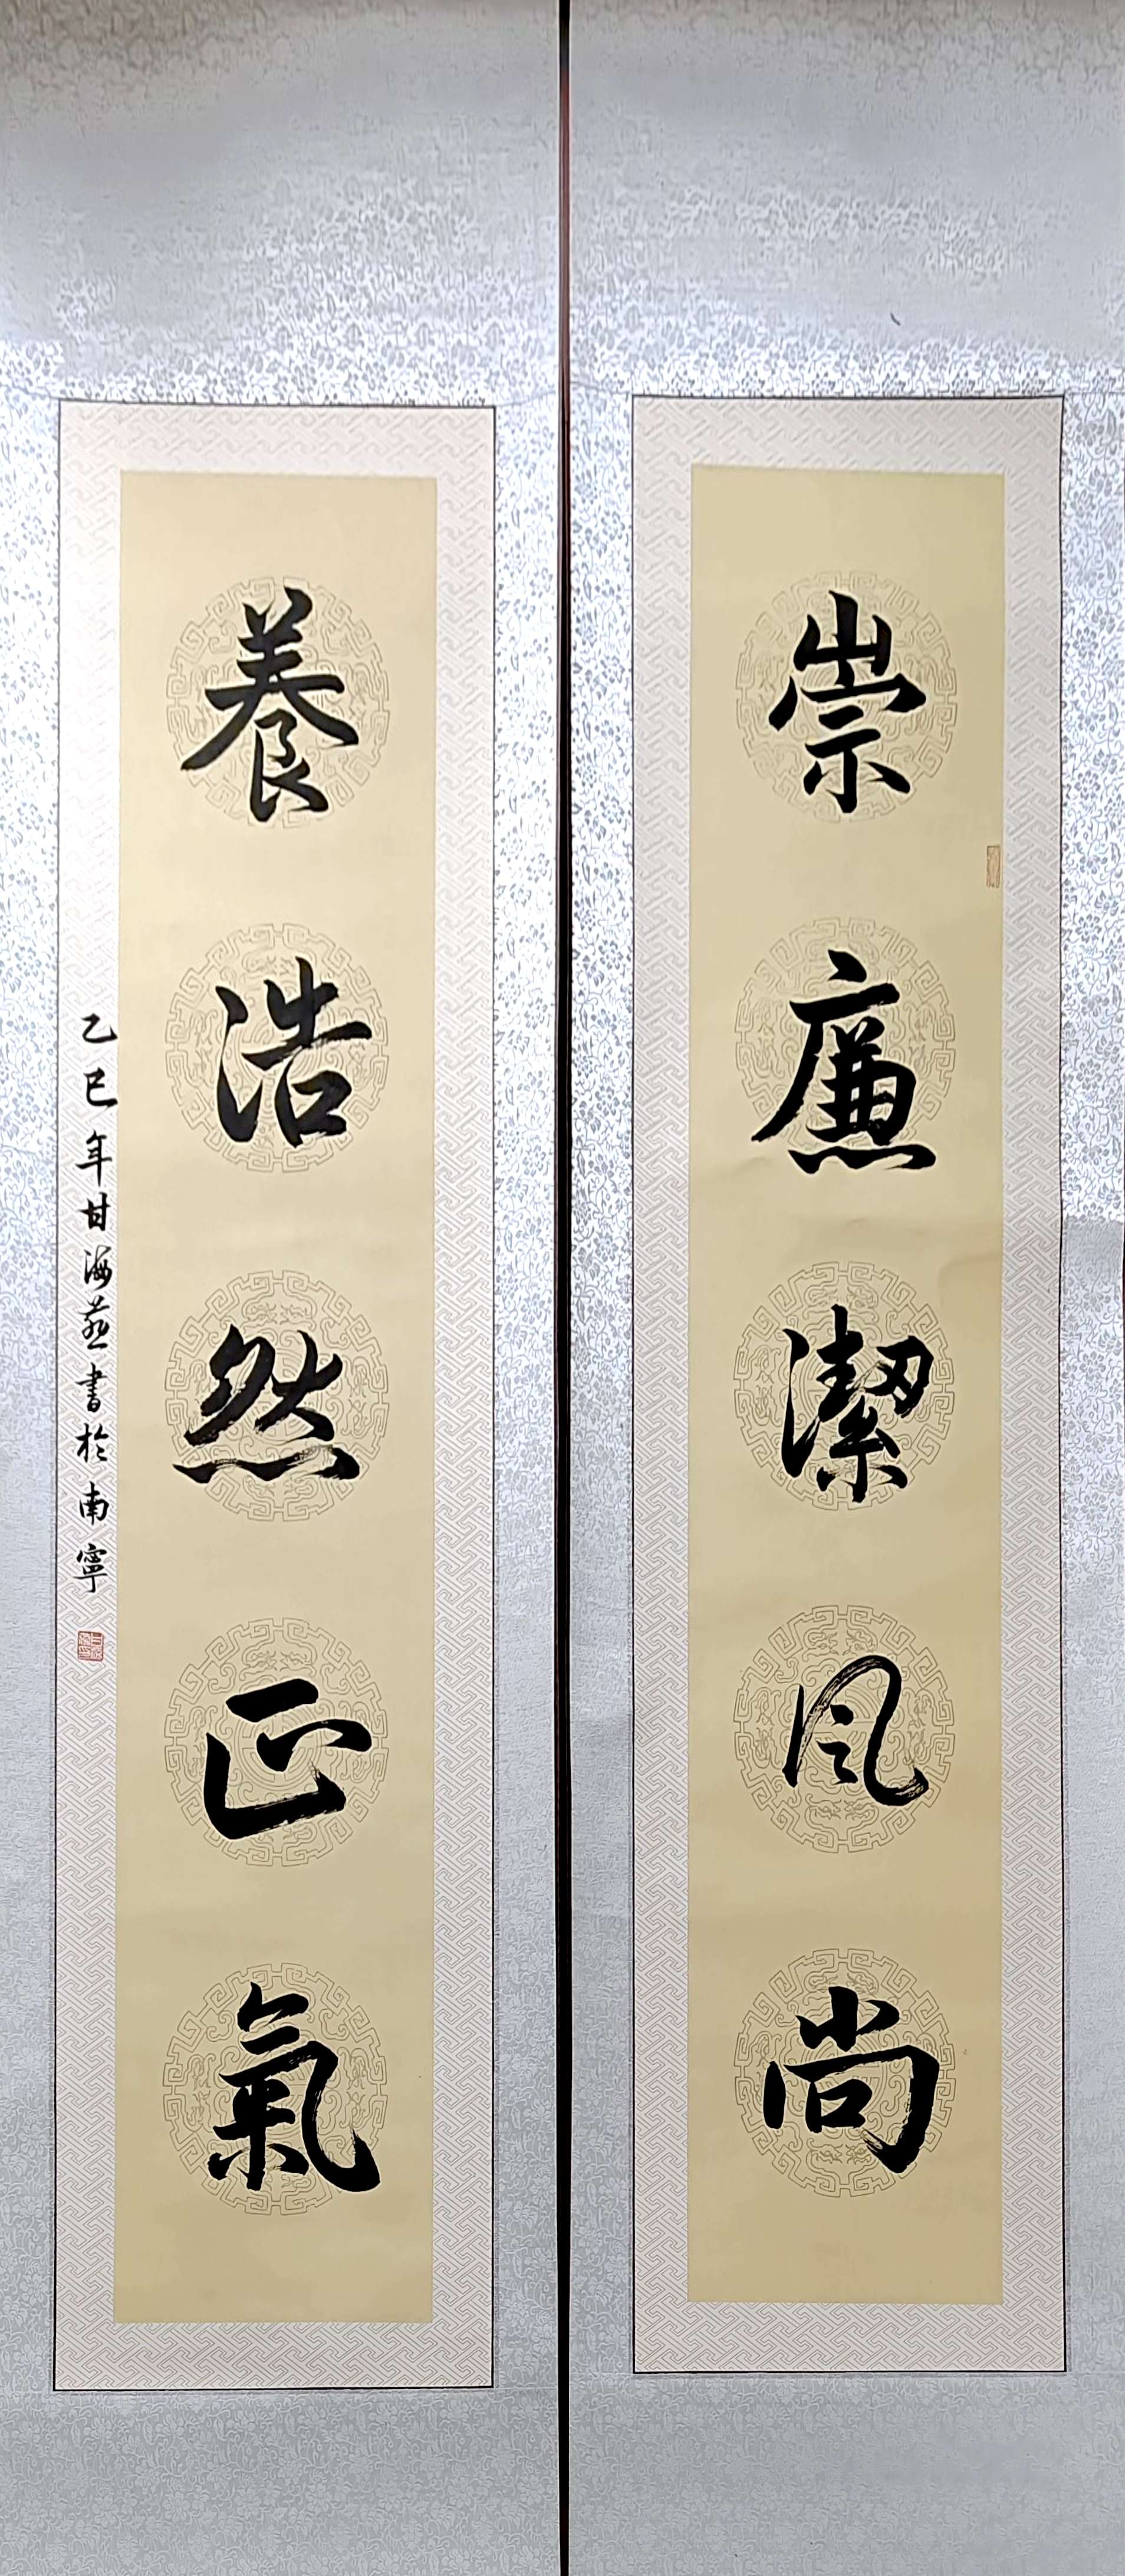 崇廉潔風尚
養浩然正氣
乙巳年甘海燕書於南寧